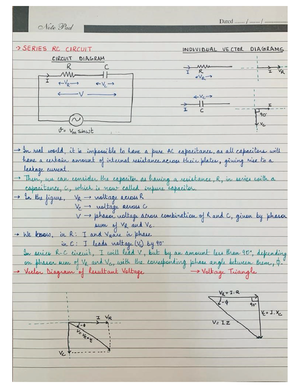 Note Pad
Date: ..... / ..... / .....
→ SERIES RC CIRCUIT
CIRCUIT DIAGRAM
INDIVIDUAL VECTOR DIAGRAMS
R C
I
← V_R → ← V_C →
← V →
v = V_m sin ωt
R
I
← V_R →
I V_R
← V_C →
I
C
I
90°
V_C
→ In real world, it is impossible to have a pure AC capacitance, as all capacitors will
have a certain amount of internal resistance across their plates, giving rise to a
leakage current.
→ Then, we can consider the capacitor as having a resistance, R, in series with a
capacitance, C, which is now called impure capacitor.
→ In the figure, V_R → voltage across R
V_C → voltage across C
V → phasor voltage across combination of R and C, given by phasor
sum of V_R and V_C.
→ We know, in R: I and V_R are in phase
in C: I leads voltage (V_C) by 90°
In series R-C circuit, I will lead V, but by an amount less than 90°, depending
on phasor sum of V_R and V_C, with the corresponding phase angle between them, φ.
→ Vector Diagram of Resultant Voltage
→ Voltage Triangle
I V_R
-φ
V_C
V_R = I.R
-φ
90°
V_C = I.X_C
V = I.Z